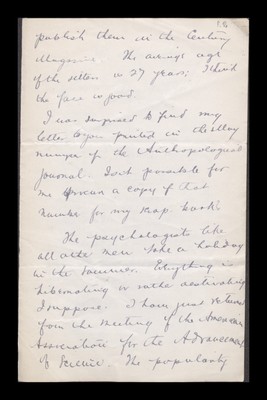 18
publish them in the Century
Magazine. The average age
of the sitters is 27 years; I think
the face is good.
I was surprised to find my
letter to you printed in the May
number of the Anthropological
Journal. Is it possible for
me to procure a copy of that
number for my scrap book?
The psychologists like
all other men take a holiday
in the summer. Everything is
hibernating or rather aestivating
I suppose. I have just returned
from the meeting of the American
Association for the Advancement
of Science. The popularity